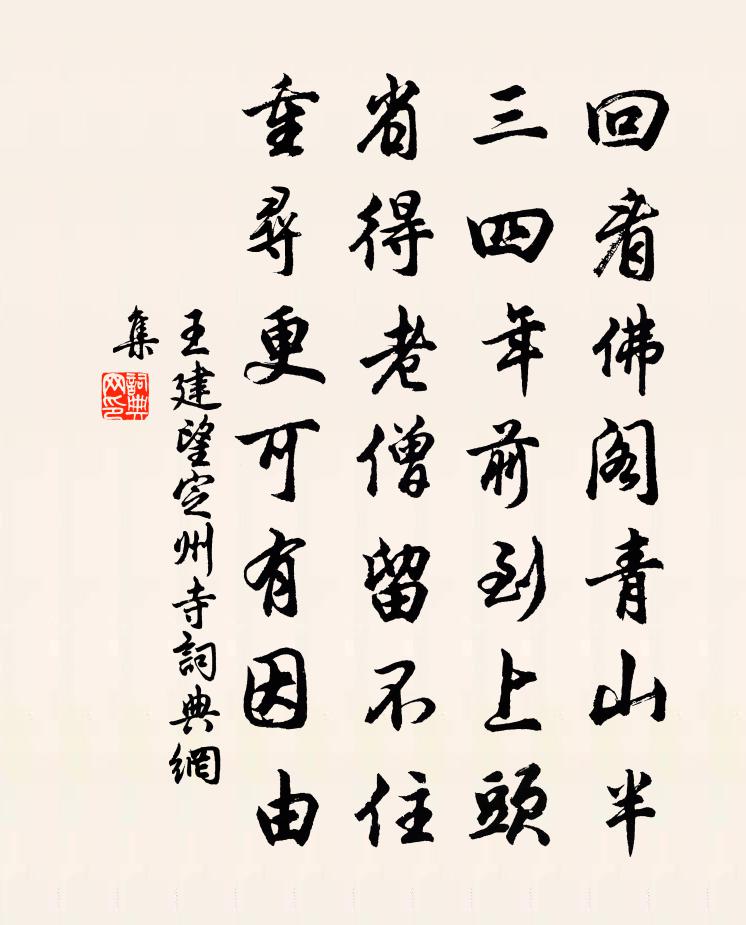 回看佛閣青山半
三四年前到上頭
省得老僧留不住
重尋更可有因由
王建望定州寺詞典網
集
詞典
网印